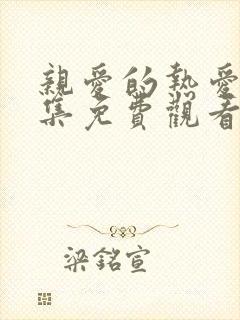 親愛的熱愛
集免費觀看
梁銘宣